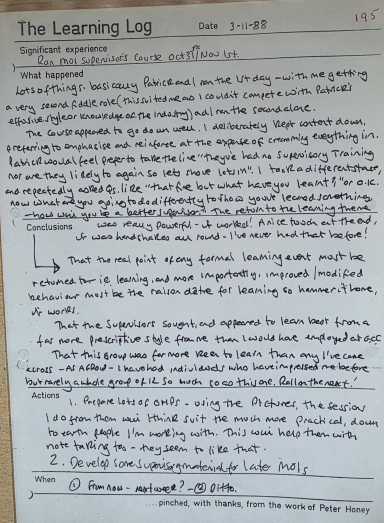 195
The Learning Log Date 3-11-88
Significant experience
Ran MOL Supervisors Course Oct 31st/Nov 1st.
What happened
Lots of things. basically Patrick and I ran the 1st day - with me getting
a very second fiddle role (this suited me as I couldn't compete with Patrick's
effusive style or knowledge of the industry) and I ran the second alone.
The course appeared to go down well. I deliberately kept content down,
preferring to emphasise and reinforce at the expense of cramming everything in.
Patrick would I feel prefer to take the line "they've had no supervisory training
nor are they likely to again so lets shove lots in". I took a different stance,
and repeatedly asked Qs. like "that's fine but what have you learnt?" or "O.K.
now what are you going to do differently to show you've learned something
- how will you be a better supervisor?" The return to the learning theme
Conclusions was really powerful - it worked! A nice touch at the end,
it was handshakes all round - I've never had that before!
That the real point of any formal learning event must be
returned to ie learning, and more importantly, improved/modified
behaviour must be the raison d'etre for learning so hammer it home,
it works.
That the Supervisors sought, and appeared to learn best from a
far more prescriptive style from me than I would have employed at
That this Group was far more keen to learn than any I've come
across - AS A GROUP - I have had individuals who have impressed me before
but rarely a whole group of 12 so much so as this one. Roll on the next!
Actions
1. Prepare lots of OHPs - using the pictures, the sessions
I do from them will I think suit the much more practical, down
to earth people I'm working with. This will help them with
note taking too - they seem to like that.
2. Develop some supervisory material for later MOLs
When
① From now - next week? - ② Ditto.
....pinched, with thanks, from the work of Peter Honey